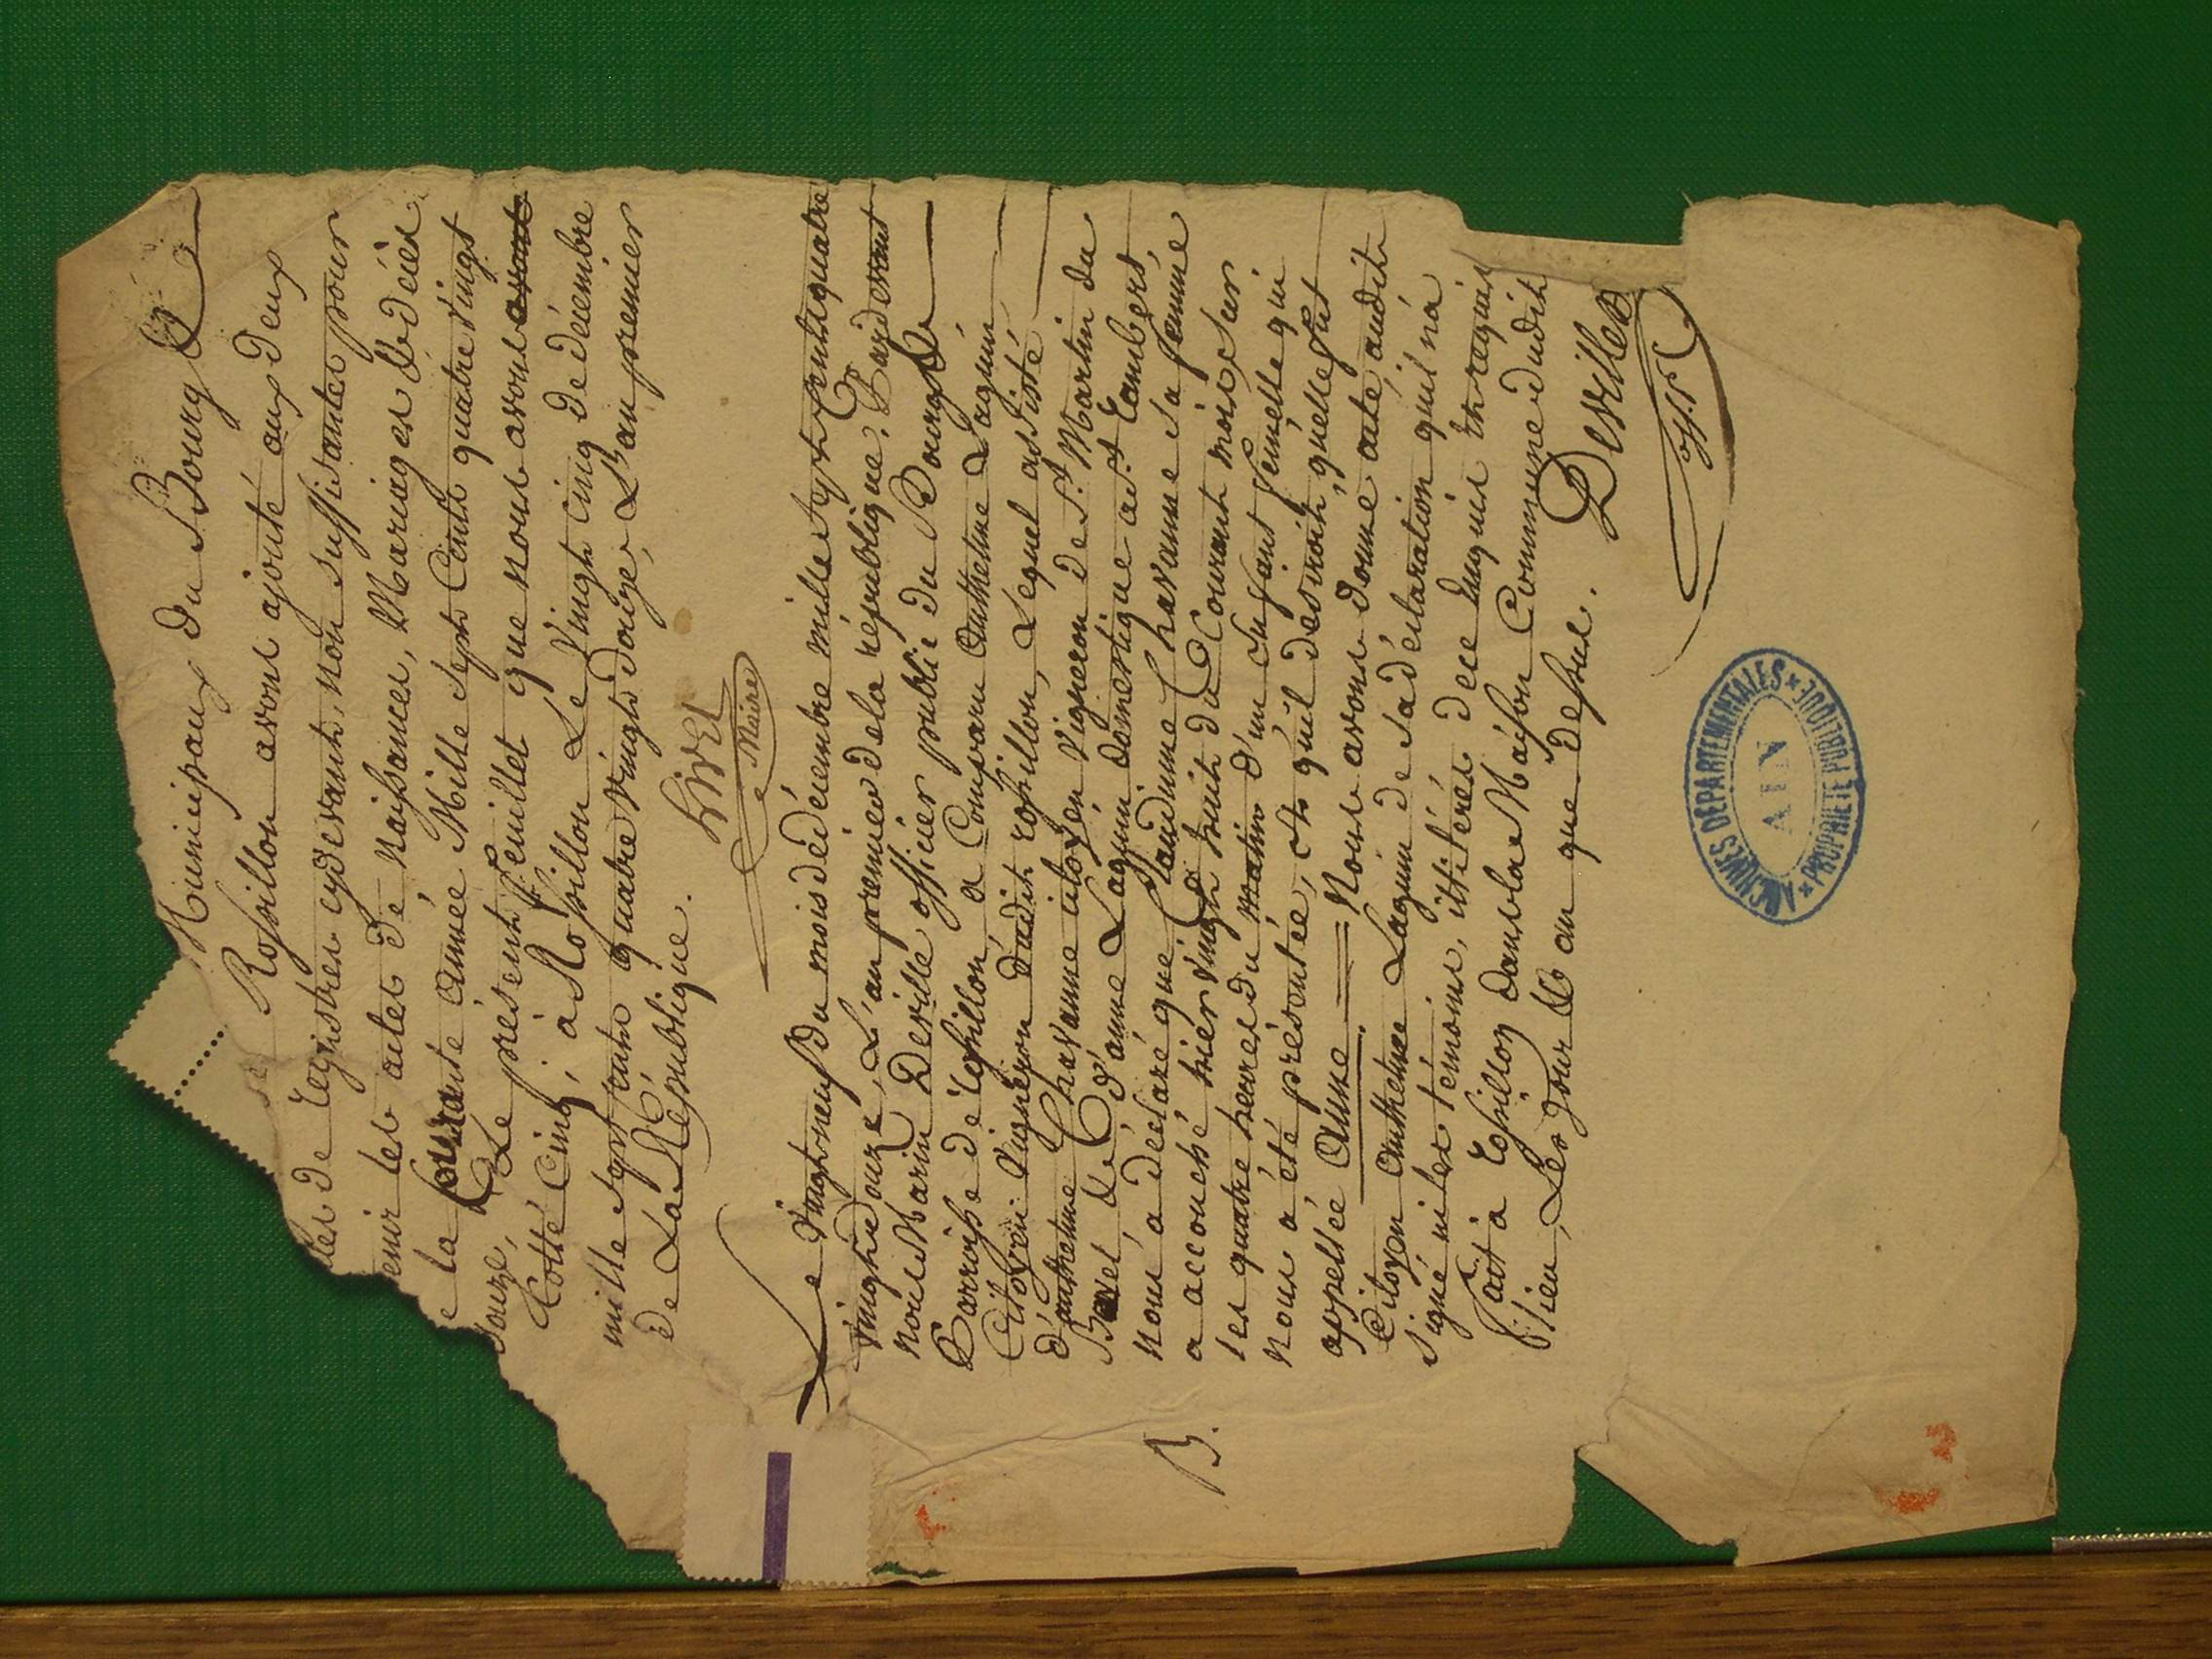 Municipaux du Bourg &
Rossillon avons ajouté aux deux
les de Registres cydevant, non suffisantes pour
enir les actes de naissances, Mariages & décès
e la Courante année Mille sept Cents quatre vingt
douze, Le présent feuillet que nous avons
Cotté Cinq, à Rossillon Le vingt cinq de décembre
mille sept cents quatre vingts douze, L'an premier
De La République.
Livet
Maire
Le vingt neuf du mois de décembre mille sept Cents quatre
vingt douze, L'an premier de la république. Pardevant
nous Marin Deville officier public du Bourg &
Parroisse de Rossillon, a Comparu Anthelme Laguin
Citoyen vigneron dudit rossillon, Lequel assisté
d'anthelme Chavanne citoyen vigneron de St. Martin du
Bavel, & d'anne Laguin domestique a St. Lambert,
nous a déclaré que Claudinne Chavanne sa femme
a accouché hier vingt huit du Courant mois sur
les quatre heures du matin d'un Enfant femelle qui
nous a été présentée, et qu'il désiroit, quelle fut
appellée Anne. Nous avons donné acte, audit
Citoyen Anthelme Laguin de sa déclaration qu'il n'a
signé ni les témoins, illitérés de ce Enquis et requis
Fait à Rossillon dans la Maison Commune dudit
lieu, Les Jour & an que Dessus.
Deville
off. p.
B.
ARCHIVES DÉPARTEMENTALES
AIN
* PROPRIÉTÉ PUBLIQUE *